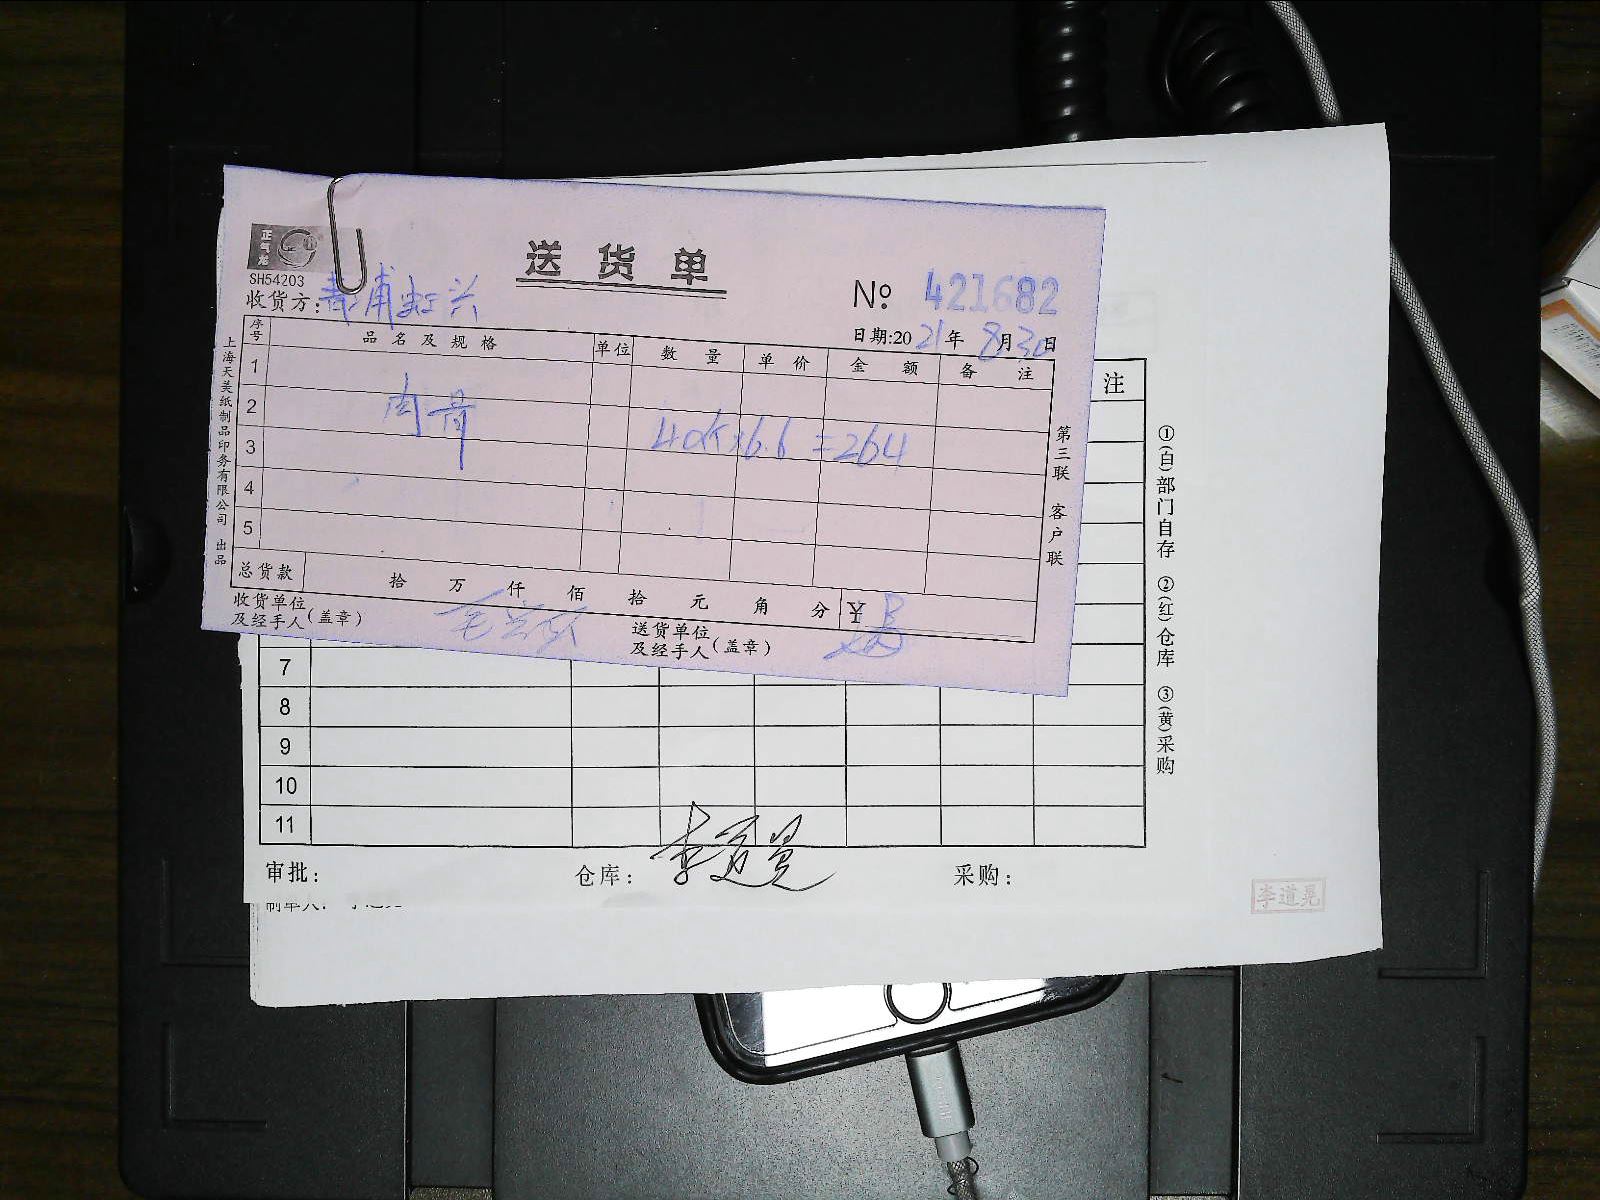 正气龙
SH54203
送货单
№ 421682
收货方:青浦虹兴
日期:2021年8月30日
序号 品名及规格 单位 数量 单价 金额 备注
1
2 肉骨
3 40斤×6.6=264
4
5
总货款 拾 万 仟 佰 拾 元 角 分 ¥
收货单位及经手人(盖章)
送货单位及经手人(盖章)
上海天美纸制品印务有限公司 出品
第三联 客户联
注
7
8
9
10
11
①(白)部门自存 ②(红)仓库 ③(黄)采购
审批:
仓库:李道晃
采购:
李道晃